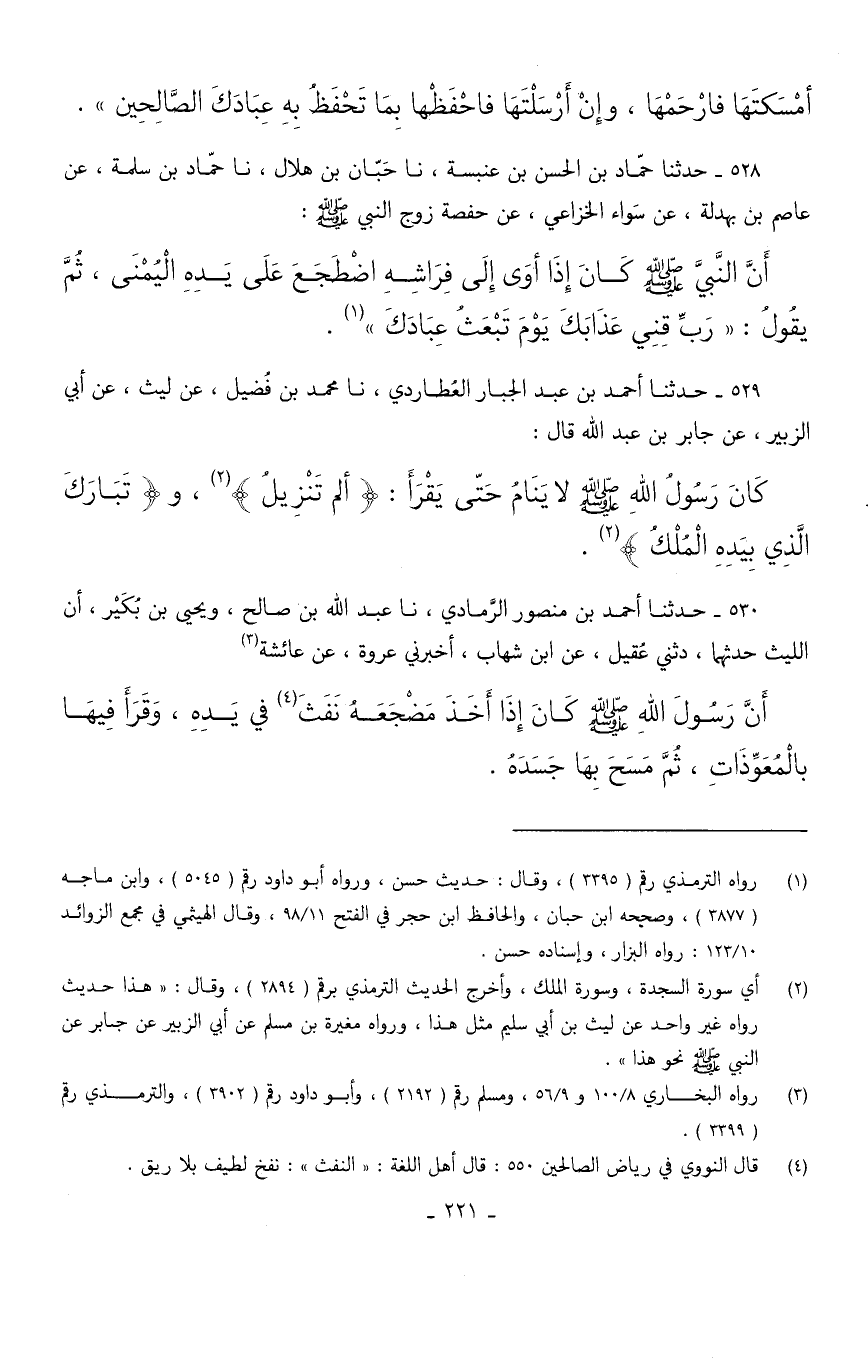 أَمْسَكتَهَا فارْحَمْهَا ، وإنْ أَرْسَلْتَهَا فاحْفَظْها بِمَا تَحْفَظُ بِهِ عِبَادَكَ الصَّالحِين » .
٥٢٨ ـ حدثنا حمّاد بن الحسن بن عنبسة ، نا حَبّان بن هلال ، نا حمّاد بن سلمة ، عن
عاصم بن بهدلة ، عن سَواء الخزاعي ، عن حفصة زوج النبي ﷺ :
أَنَّ النَّبِيَّ ﷺ كَانَ إِذَا أوَى إلَى فِرَاشِهِ اضْطَجَعَ عَلَى يَدِهِ الْيُمْنَى ، ثُمَّ
يقُولُ : « رَبِّ قِنِي عَذَابَكَ يَوْمَ تَبْعَثُ عِبَادَكَ »(١) .
٥٢٩ ـ حدثنا أحمد بن عبد الجبار العُطاردي ، نا محمد بن فُضيل ، عن ليث ، عن أبي
الزبير ، عن جابر بن عبد الله قال :
كَانَ رَسُولُ اللهِ ﷺ لا يَنَامُ حَتَّى يَقْرَأَ : ﴿ ألم تَنْزِيلُ ﴾(٢) ، و ﴿ تَبَارَكَ
الَّذِي بِيَدِهِ الْمُلْكُ ﴾(٢) .
٥٣٠ ـ حدثنا أحمد بن منصور الرَّمادي ، نا عبد الله بن صالح ، ويحيى بن بُكَيْر ، أن
الليث حدثها ، دثني عُقيل ، عن ابن شهاب ، أخبرني عروة ، عن عائشة(٣)
أَنَّ رَسُولَ اللهِ ﷺ كَانَ إِذَا أَخَذَ مَضْجَعَهُ نَفَثَ(٤) فِي يَدِهِ ، وَقَرَأَ فِيهَا
بالْمُعَوِّذَاتِ ، ثُمَّ مَسَحَ بِهَا جَسَدَهُ .
(١) رواه الترمذي رقم ( ٣٣٩٥ ) ، وقال : حديث حسن ، ورواه أبو داود رقم ( ٥٠٤٥ ) ، وابن ماجه
( ٣٨٧٧ ) ، وصححه ابن حبان ، والحافظ ابن حجر في الفتح ٩٨/١١ ، وقال الهيثمي في مجمع الزوائد
١٢٣/١٠ : رواه البزار ، وإسناده حسن .
(٢) أي سورة السجدة ، وسورة الملك ، وأخرج الحديث الترمذي برقم ( ٢٨٩٤ ) ، وقال : « هذا حديث
رواه غير واحد عن ليث بن أبي سليم مثل هذا ، ورواه مغيرة بن مسلم عن أبي الزبير عن جابر عن
النبي ﷺ نحو هذا » .
(٣) رواه البخاري ١٠٠/٨ و ٥٦/٩ ، ومسلم رقم ( ٢١٩٢ ) ، وأبو داود رقم ( ٣٩٠٢ ) ، والترمذي رقم
( ٣٣٩٩ ) .
(٤) قال النووي في رياض الصالحين ٥٥٠ : قال أهل اللغة : « النفث » : نفخ لطيف بلا ريق .
ـ ٢٢١ ـ